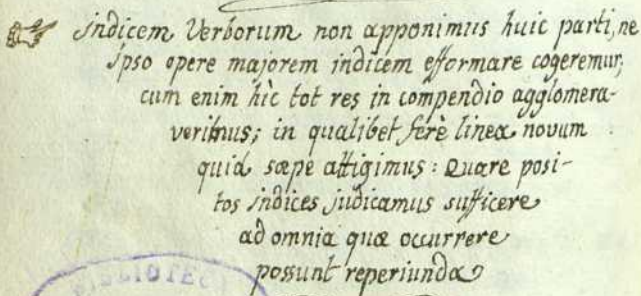 Indicem Verborum non apponimus huic parti, ne
ipso opere majorem indicem efformare cogeremur;
cum enim hìc tot res in compendio agglomera-
verimus; in qualibet ferè linea novum
quid sæpe attigimus: Quare posi-
tos indices judicamus sufficere
ad omnia quæ occurrere
possunt reperiunda
BIBLIOTEC